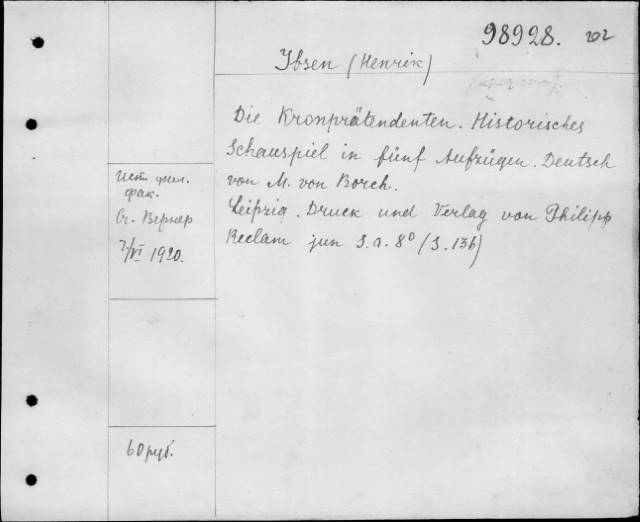 98928. 202
Ibsen (Henrik)
Die Kronprätendenten. Historisches
Schauspiel in fünf Aufzügen. Deutsch
von M. von Borch.
Leipzig. Druck und Verlag von Philipp
Reclam jun S.a. 8° (S. 136)
Ист. фил.
фак.
От. Вернер
7/VI 1920.
60 руб.